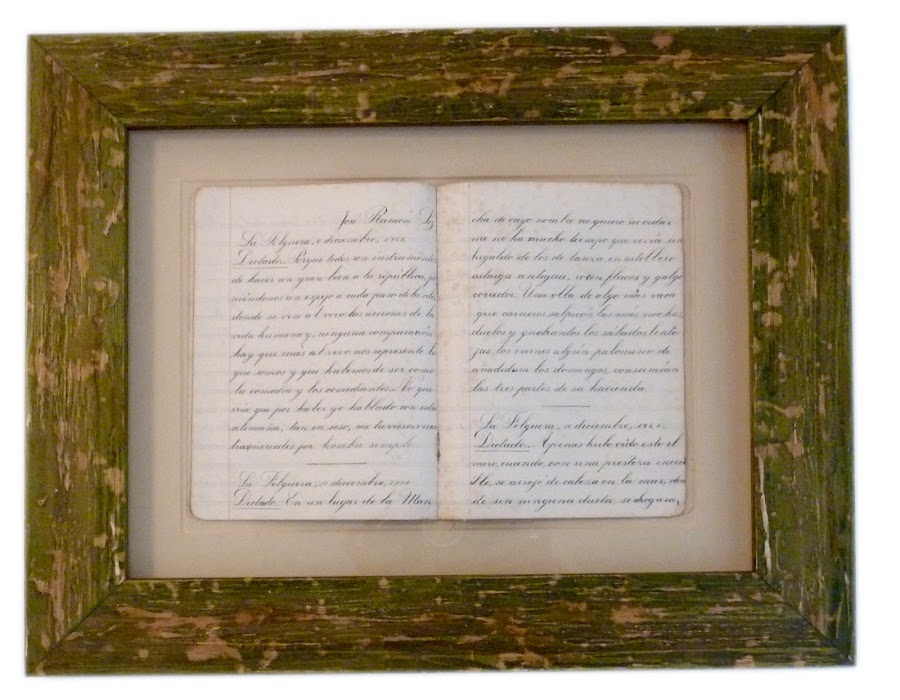 José Ramón
La Felguera, diciembre,
Dictado. Porque todos son instrumentos
de hacer un gran bien a la república, po
niéndonos un espejo a cada paso delante,
donde se ven al vivo las acciones de la
vida humana y, ninguna comparación
hay que más al vivo nos represente lo
que somos y que habemos de ser como
la comedia y los comediantes.
que por haber yo hablado con esta
tan en seso, me tuviesen
por hombre simple.
La Felguera, diciembre,
Dictado. En un lugar de la Man
cha de cuyo nombre no quiero acordar
me no ha mucho tiempo que vivía un
higaldo de los de lanza en astillero
adarga antigua, rocín flaco y galgo
corredor. Una olla de algo más vaca
que carnero salpicón las más noches,
duelos y quebrantos los sábados, lente
jas los viernes algún palomino de
añadidura los domingos, consumían
las tres partes de su hacienda.
La Felguera, diciembre,
Dictado. Apenas hubo oído esto el
moro, cuando, con una presteza increi
ble, se arrojó de cabeza en la mar, don
de sin ninguna duda se ahogara,